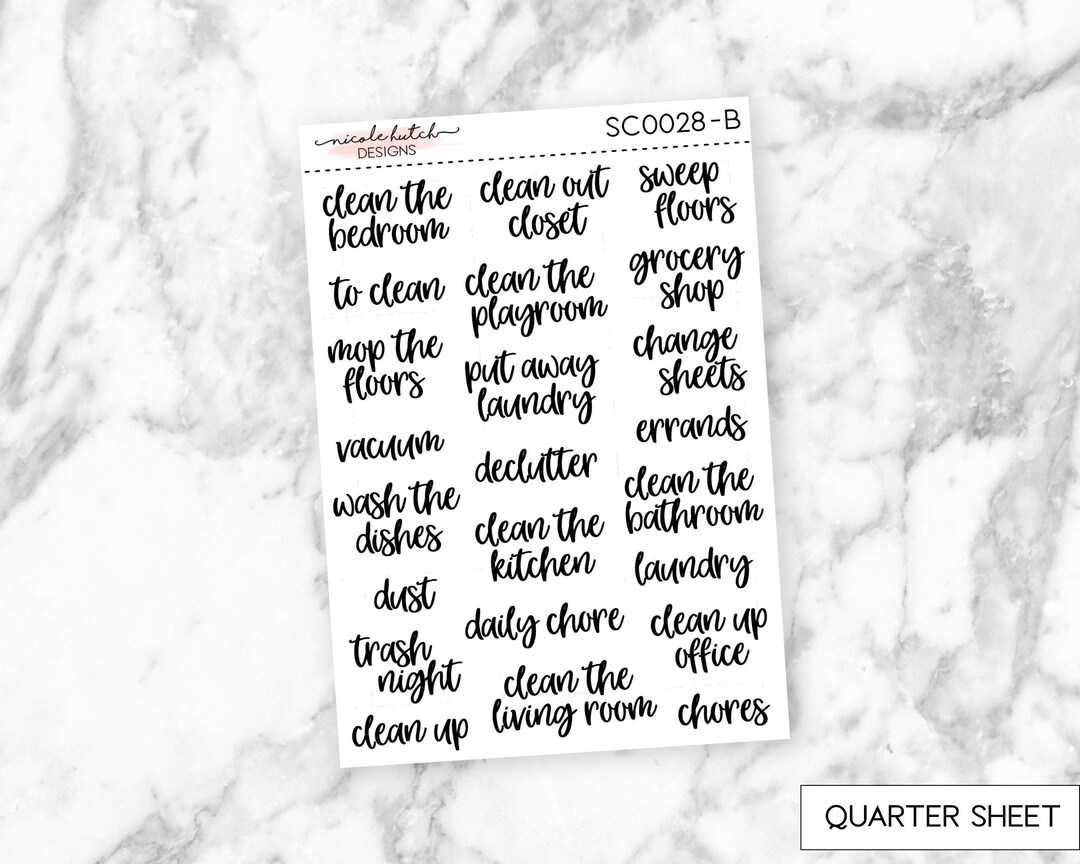 nicole hutch
DESIGNS
SC0028-B
clean the
bedroom
to clean
mop the
floors
vacuum
wash the
dishes
dust
trash
night
clean up
clean out
closet
clean the
playroom
put away
laundry
declutter
clean the
kitchen
daily chore
clean the
living room
sweep
floors
grocery
shop
change
sheets
errands
clean the
bathroom
laundry
clean up
office
chores
QUARTER SHEET